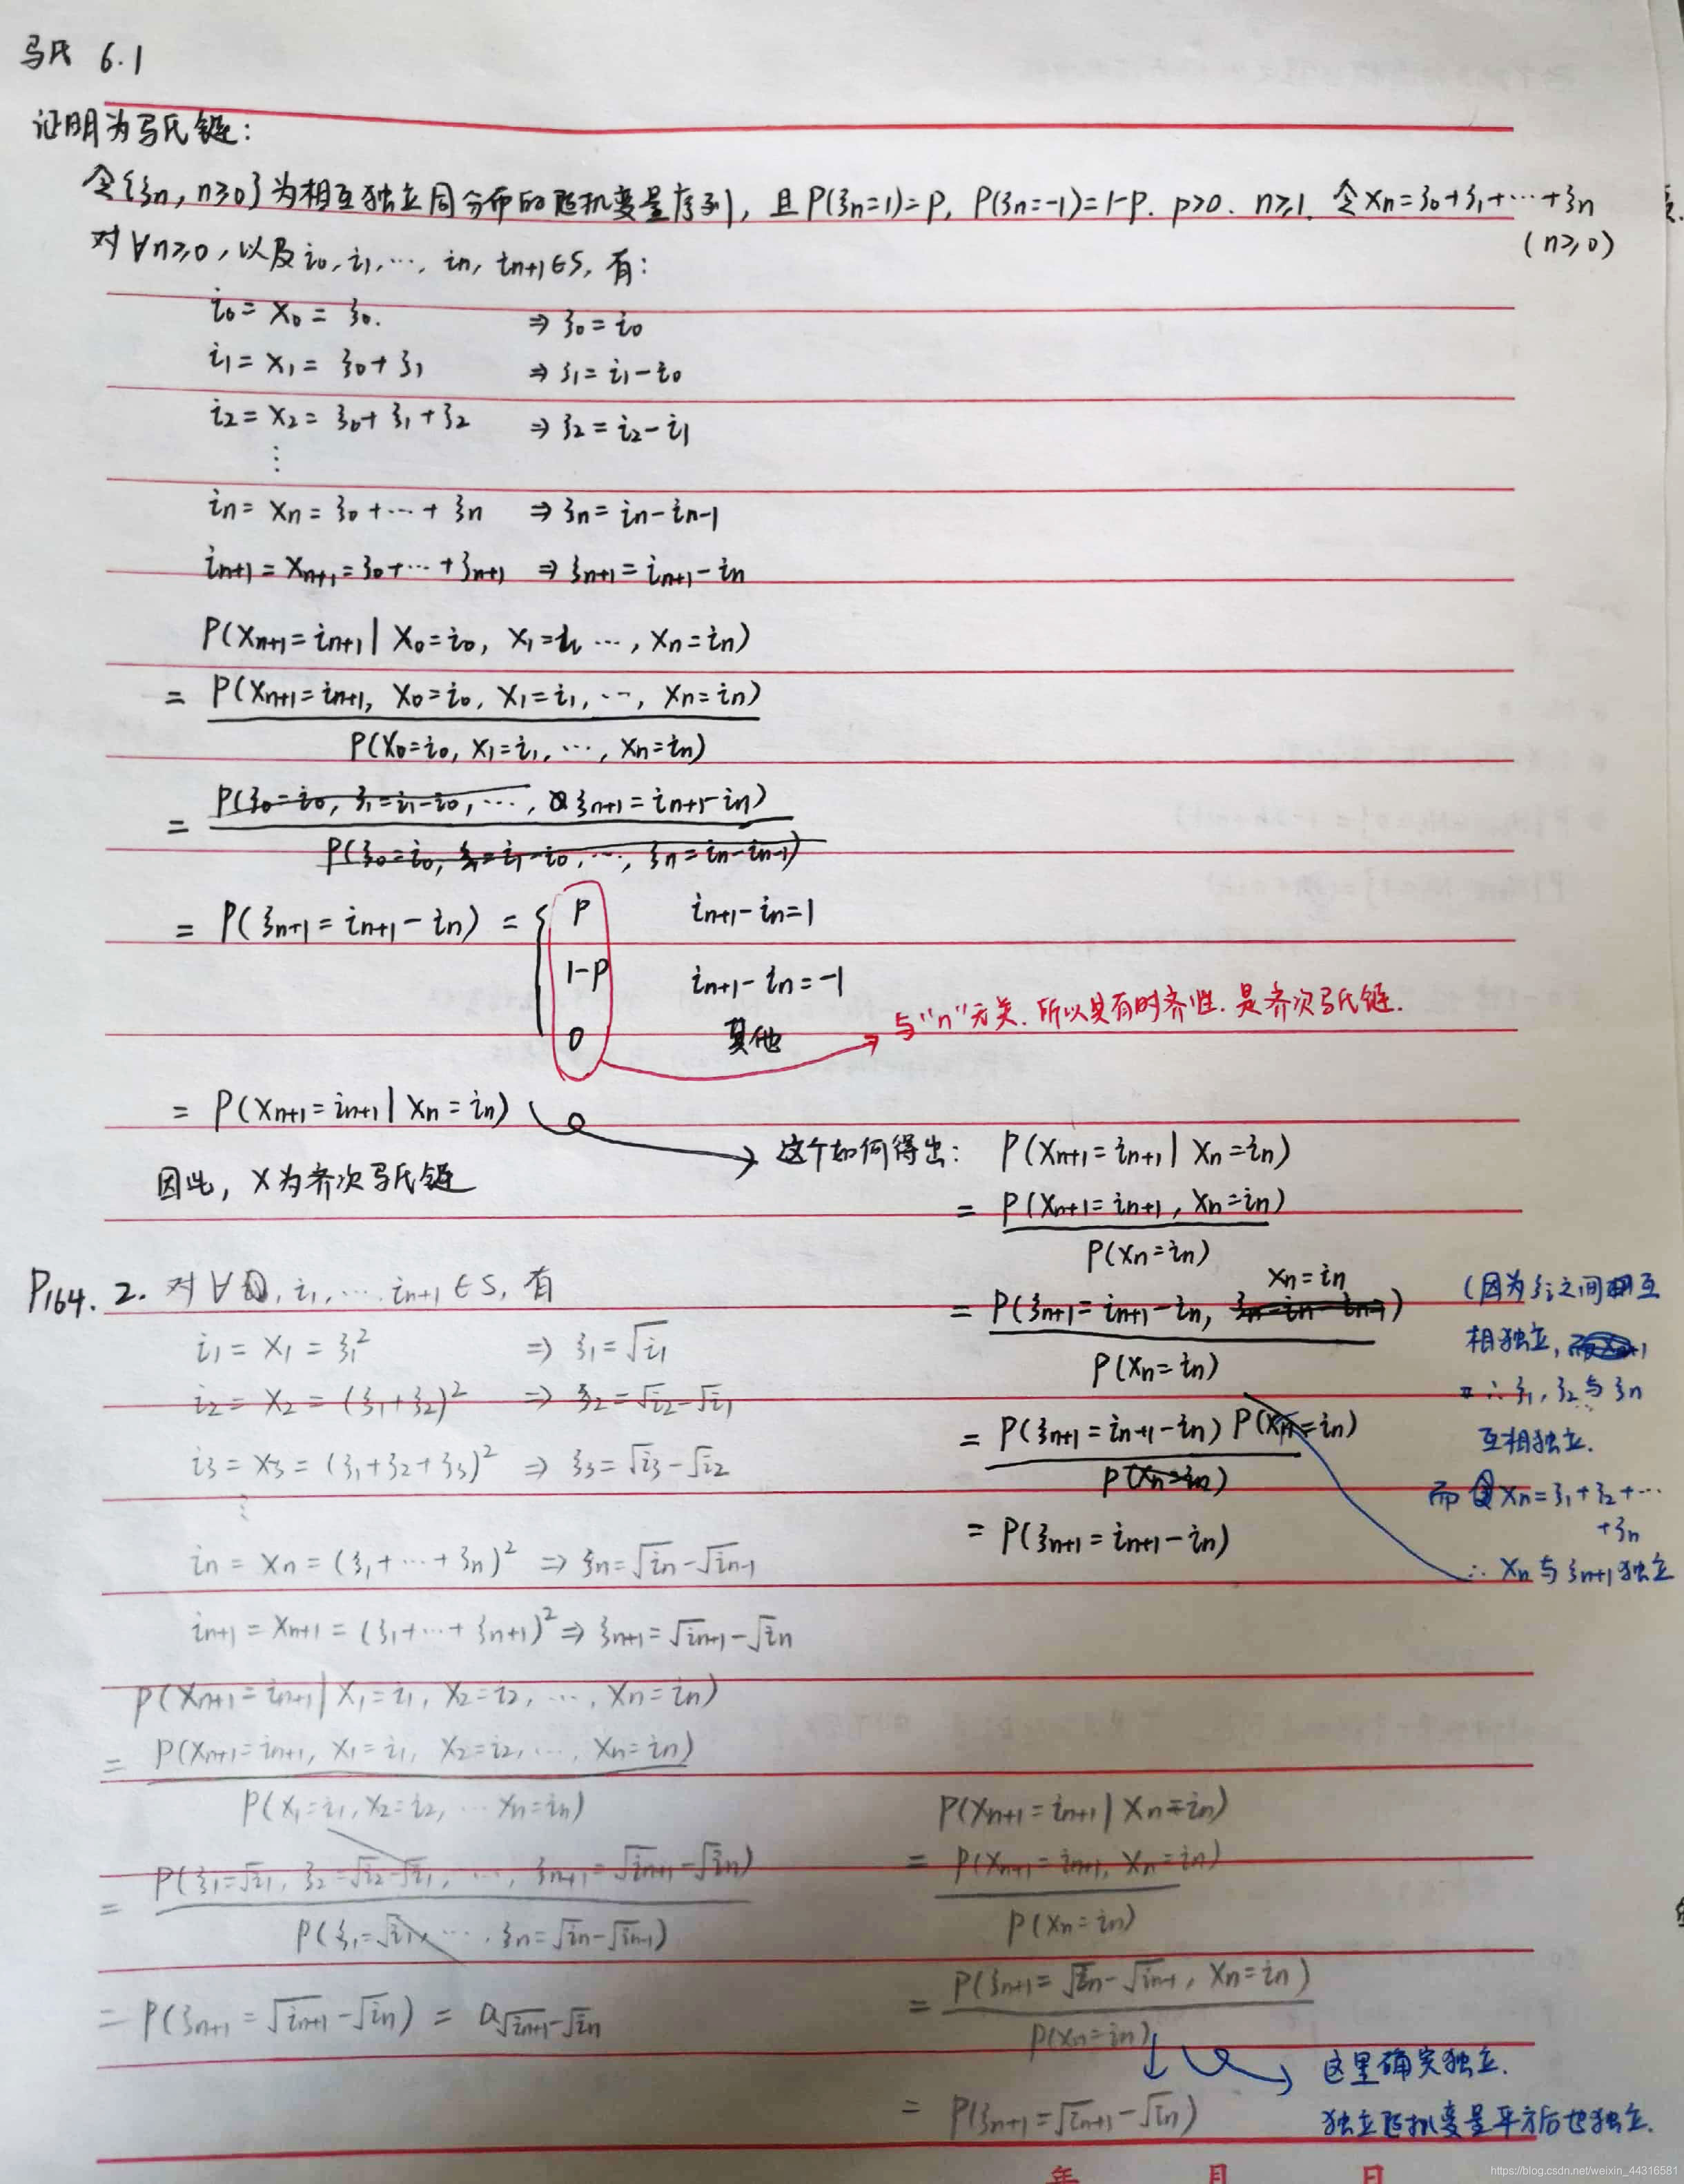 马氏 6.1
证明为马氏链:
令{ξn, n≥0}为相互独立同分布的随机变量序列, 且P(ξn=1)=P, P(ξn=-1)=1-P. p>0. n≥1. 令Xn=ξ0+ξ1+…+ξn
(n≥0)
对∀n≥0, 以及i0, i1, …, in, in+1∈S, 有:
i0 = X0 = ξ0. ⇒ ξ0 = i0
i1 = X1 = ξ0+ξ1 ⇒ ξ1 = i1-i0
i2 = X2 = ξ0+ξ1+ξ2 ⇒ ξ2 = i2-i1
⋮
in = Xn = ξ0+…+ξn ⇒ ξn = in-in-1
in+1 = Xn+1 = ξ0+…+ξn+1 ⇒ ξn+1 = in+1-in
P(Xn+1=in+1 | X0=i0, X1=i1 …, Xn=in)
= P(Xn+1=in+1, X0=i0, X1=i1, …, Xn=in)
P(X0=i0, X1=i1, …, Xn=in)
= P(ξ0=i0, ξ1=i1-i0, …, ξn+1=in+1-in)
P(ξ0=i0, ξ1=i1-i0, …, ξn=in-in-1)
= P(ξn+1=in+1-in) = { P in+1-in=1
1-P in+1-in=-1
0 其他
与"n"无关. 所以具有时齐性. 是齐次马氏链.
= P(Xn+1=in+1 | Xn=in)
因此, X为齐次马氏链
这个如何得出: P(Xn+1=in+1 | Xn=in)
= P(Xn+1=in+1, Xn=in)
P(Xn=in)
Xn=in
= P(ξn+1=in+1-in, ξn=in-in-1)
P(Xn=in)
= P(ξn+1=in+1-in) P(Xn=in)
P(Xn=in)
= P(ξn+1=in+1-in)
(因为ξi之间相互
相独立,
∴ξ1, ξ2与ξn
互相独立.
而Xn=ξ1+ξ2+…
+ξn
∴ Xn与ξn+1独立
P164. 2. 对∀ i1, … in+1∈S, 有
i1 = X1 = ξ1² ⇒ ξ1=√i1
i2 = X2 = (ξ1+ξ2)² ⇒ ξ2=√i2-√i1
i3 = X3 = (ξ1+ξ2+ξ3)² ⇒ ξ3=√i3-√i2
⋮
in = Xn = (ξ1+…+ξn)² ⇒ ξn=√in-√in-1
in+1 = Xn+1 = (ξ1+…+ξn+1)² ⇒ ξn+1=√in+1-√in
P(Xn+1=in+1 | X1=i1, X2=i2, …, Xn=in)
= P(Xn+1=in+1, X1=i1, X2=i2, …, Xn=in)
P(X1=i1, X2=i2, … Xn=in)
= P(ξ1=√i1, ξ2=√i2-√i1, …, ξn+1=√in+1-√in)
P(ξ1=√i1, …, ξn=√in-√in-1)
= P(ξn+1=√in+1-√in) = a√in+1-√in
P(Xn+1=in+1 | Xn=in)
= P(Xn+1=in+1, Xn=in)
P(Xn=in)
= P(ξn+1=√in-√in-1, Xn=in)
P(Xn=in)
= P(ξn+1=√in+1-√in)
这里确实独立.
独立随机变量平方后也独立.
年 月 日
https://blog.csdn.net/weixin_44316581